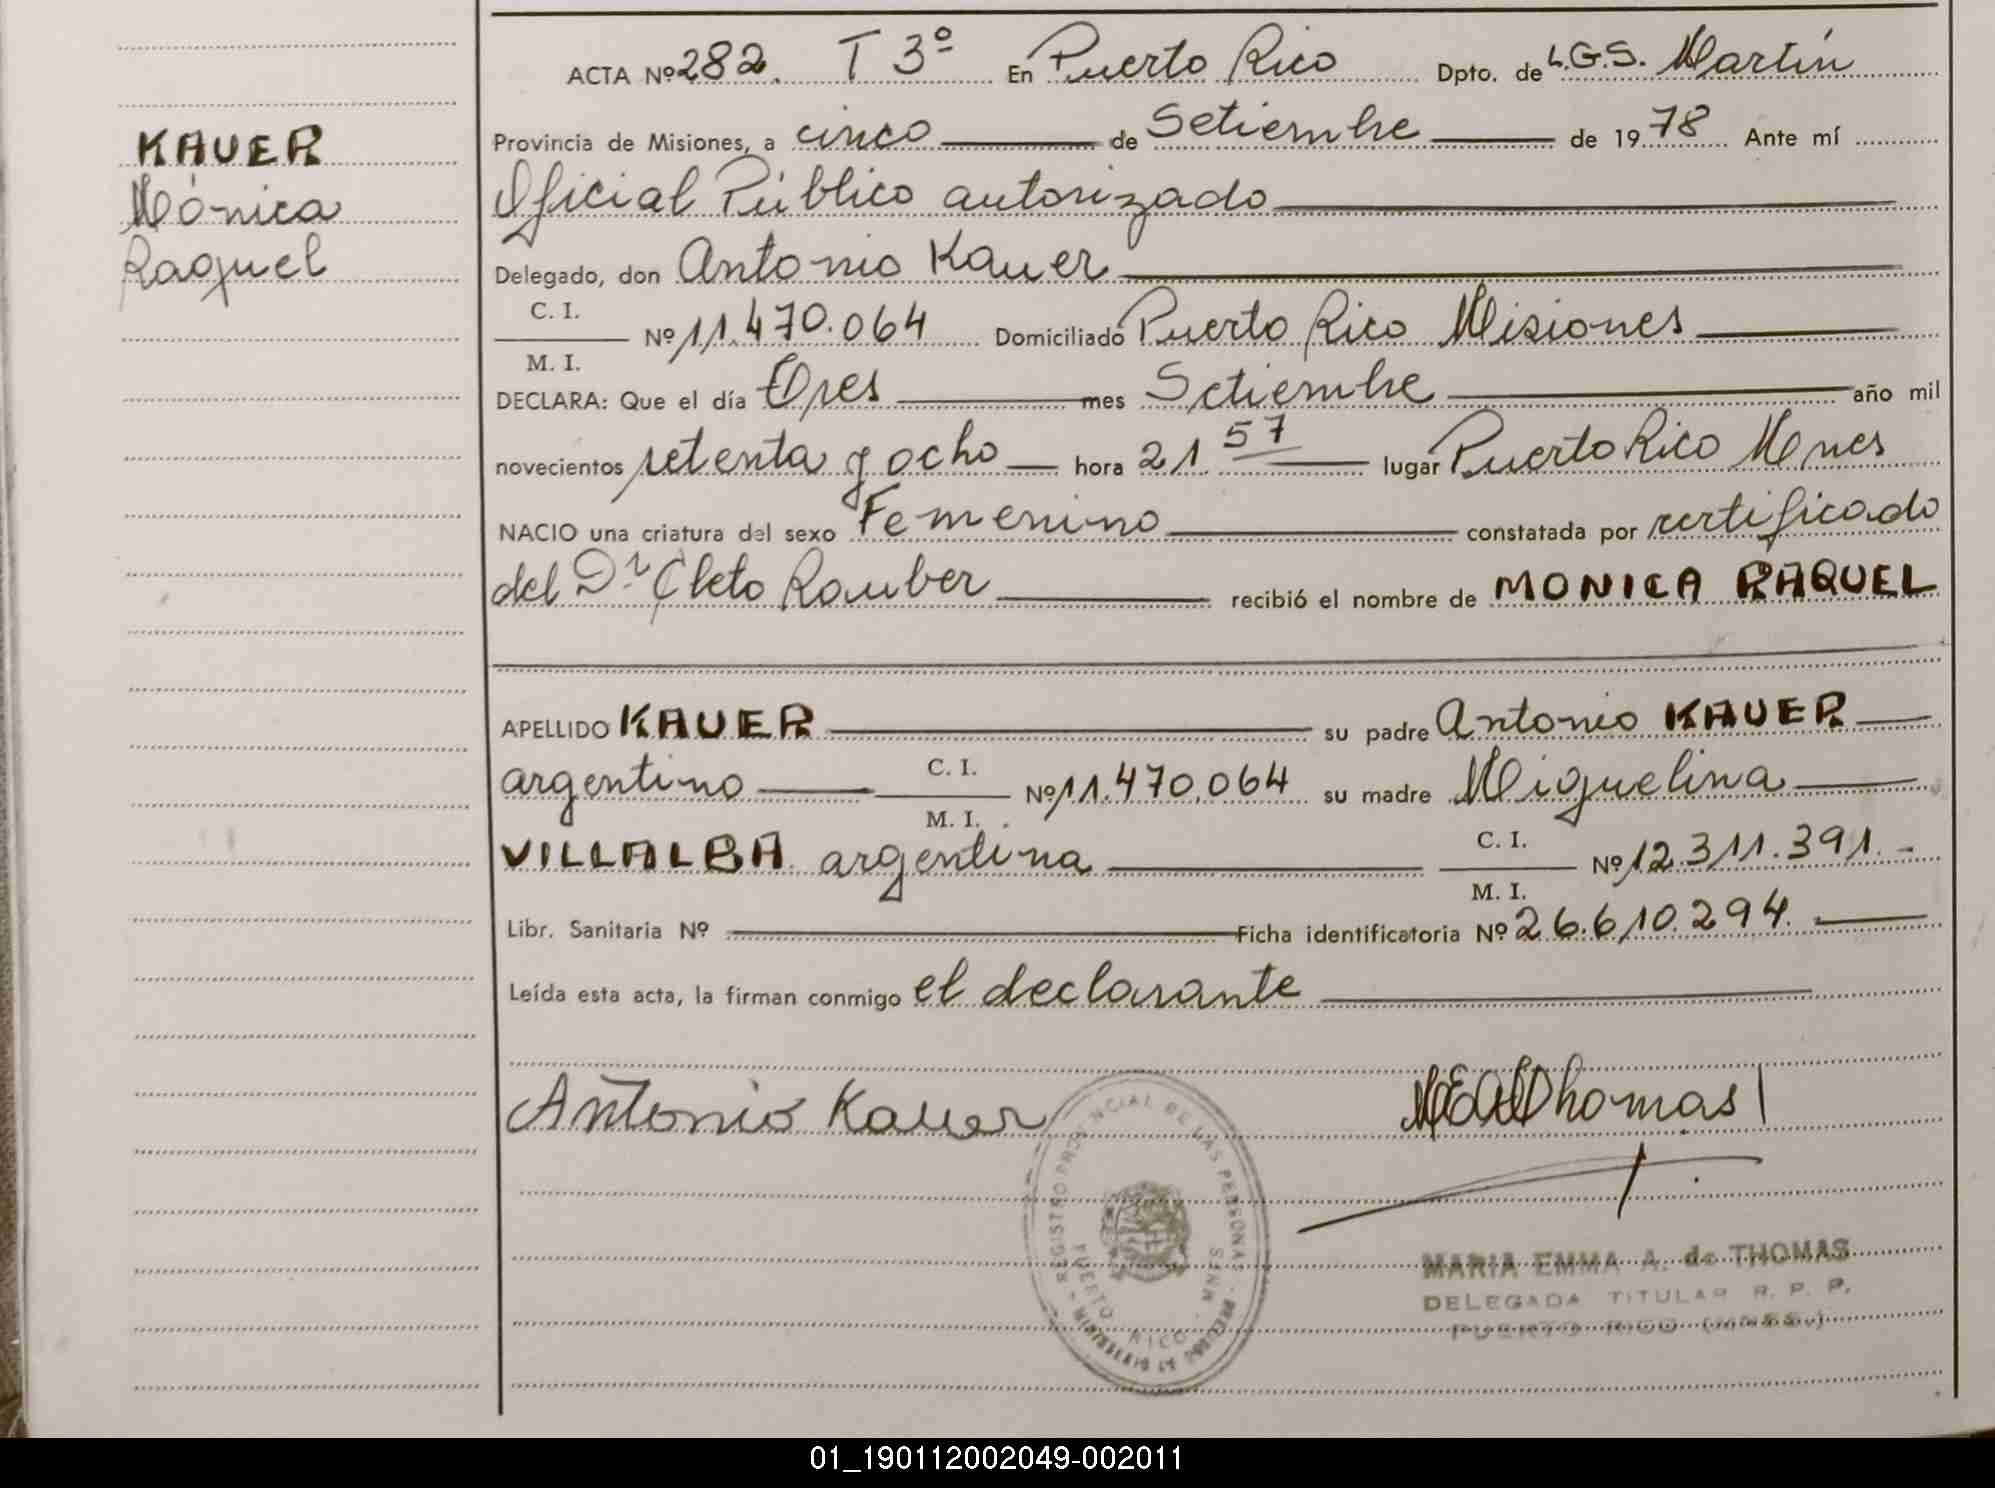 KAUER
Mónica
Raquel
ACTA Nº 282. T 3º En Puerto Rico Dpto. de L.G.S. Martín
Provincia de Misiones, a cinco de Setiembre de 1978 Ante mí
Oficial Público autorizado
Delegado, don Antonio Kauer
C. I.
M. I.
Nº 11.470.064 Domiciliado Puerto Rico Misiones
DECLARA: Que el día Tres mes Setiembre año mil
novecientos setenta y ocho hora 21.57 lugar Puerto Rico Mnes
NACIO una criatura del sexo Femenino constatada por certificado
del Dr Cleto Rauber recibió el nombre de MONICA RAQUEL
APELLIDO KAUER su padre Antonio KAUER
argentino C. I. M. I. Nº 11.470.064 su madre Miguelina
VILLALBA argentina C. I. M. I. Nº 12.311.391.-
Libr. Sanitaria Nº Ficha identificatoria Nº 26.610.294.
Leída esta acta, la firman conmigo el declarante
Antonio Kauer
MEAdThomas
REGISTRO PROVINCIAL DE LAS PERSONAS
PUERTO RICO MNES
MARIA EMMA A. de THOMAS
DELEGADA TITULAR R. P. P.
PUERTO RICO (MNES.)
01_190112002049-002011